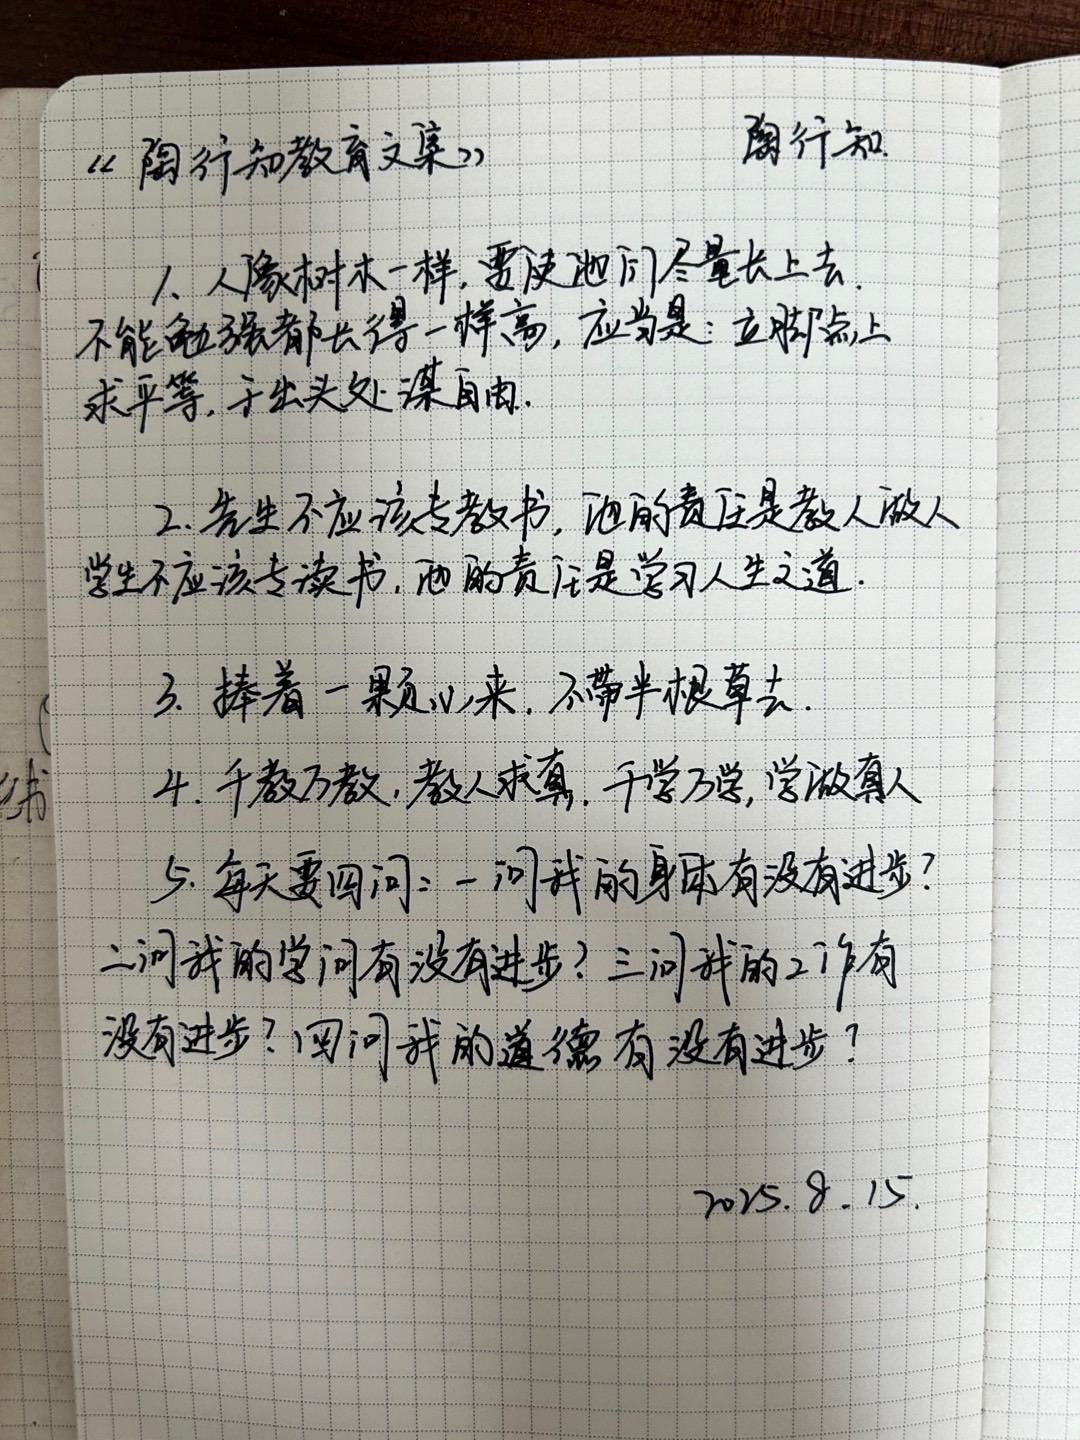 《陶行知教育文集》 陶行知.
1、人像树木一样,要使他们尽量长上去.
不能勉强都长得一样高,应当是:立脚点上
求平等,于出头处谋自由.
2.先生不应该专教书,他的责任是教人做人
学生不应该专读书,他的责任是学习人生之道.
3.捧着一颗心来,不带半根草去.
4.千教万教,教人求真.千学万学,学做真人
5.每天要四问:一问我的身体有没有进步?
二问我的学问有没有进步?三问我的工作有
没有进步?四问我的道德有没有进步?
2025.8.15.